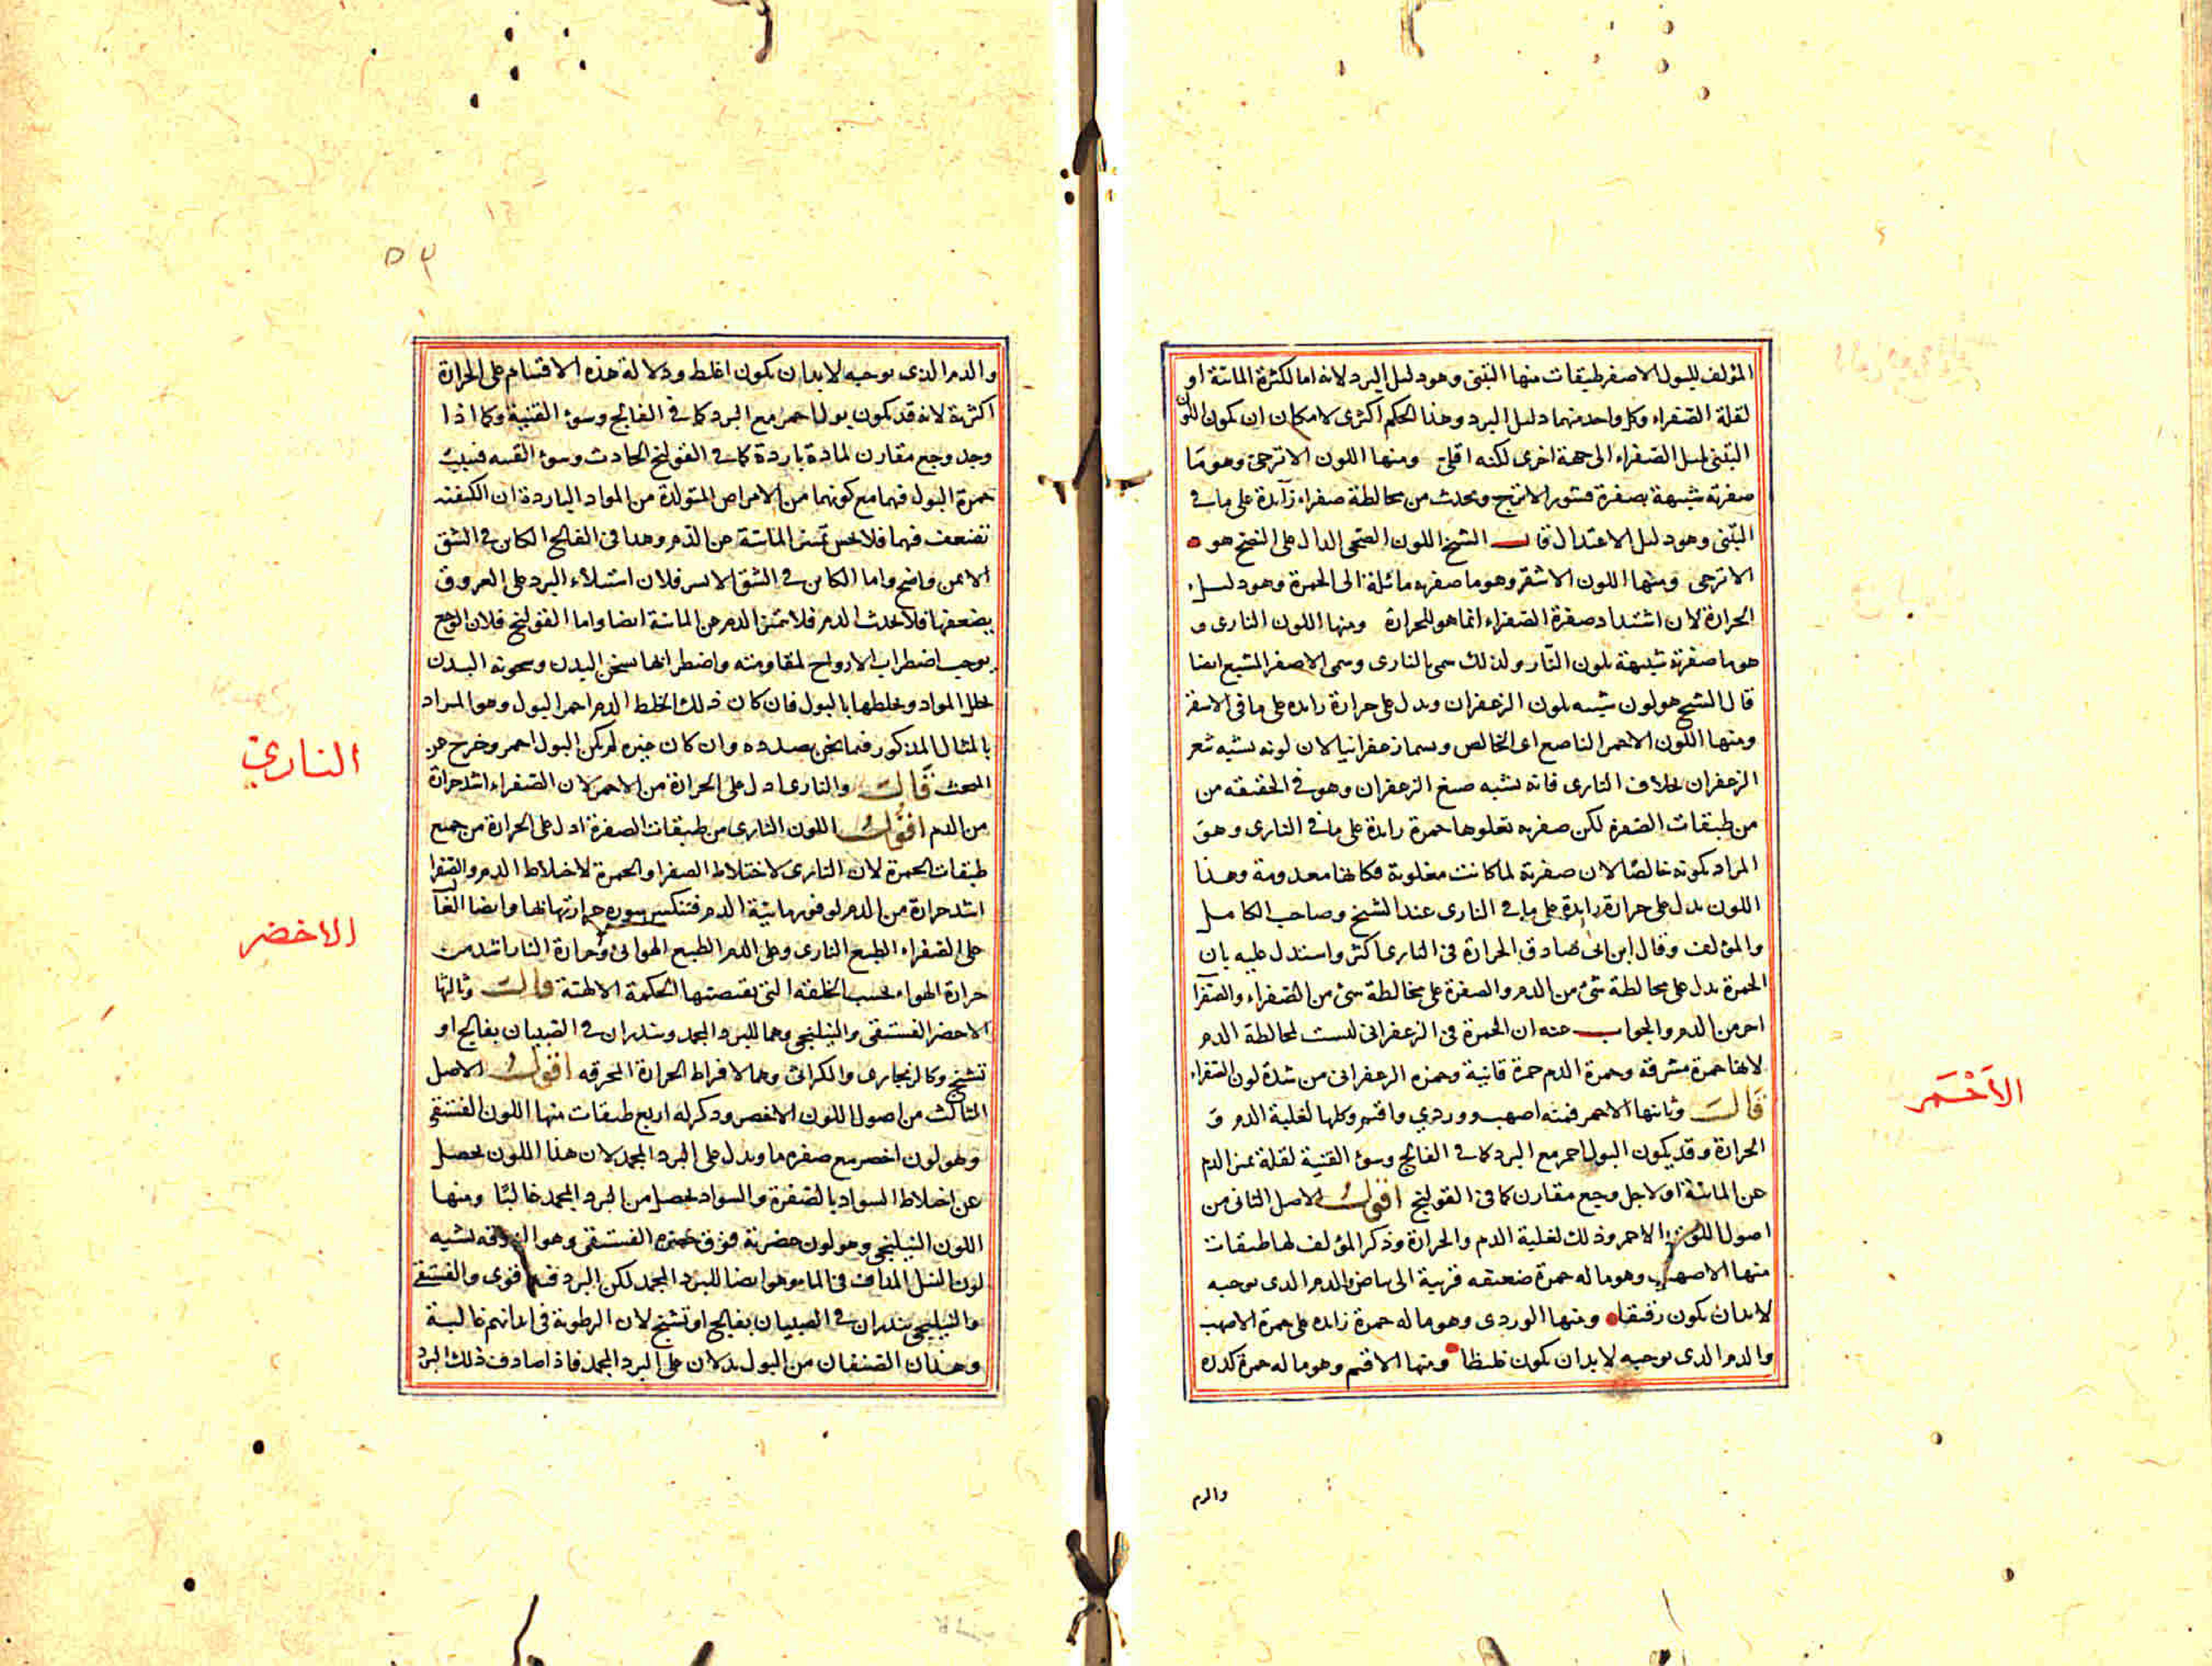 المؤلف للبول الاصفر طبقات منها التبنى وهو دليل البرد لانه اما لكثرة المائية او
لقلة الصفراء وكل واحد منهما دليل البرد وهذا الحكم اكثرى لامكان ان يكون اللون
التبنى لميل الصفراء الى جهة اخرى لكنه اقلى ومنها اللون الاترجى وهو ما
صفرته شبيهة بصفرة قشور الاترج ويحدث من مخالطة صفراء زائدة على ما فى
التبنى وهو دليل الاعتدال قال الشيخ اللون الصحى الدال على النضج هو
الاترجى ومنها اللون الاشقر وهو ما صفرته مائلة الى الحمرة وهو دليل
الحرارة لان اشتداد صفرة الصفراء انما هو للحرارة ومنها اللون النارى و
هو ما صفرته شبيهة بلون النار ولذلك سمى بالنارى وسمى الاصفر المشبع ايضا
قال الشيخ هو لون شبيه بلون الزعفران ويدل على حرارة زايده على ما فى الاشقر
ومنها اللون الاحمر الناصع اى الخالص ويسما زعفرانيا لان لونه يشبه شعر
الزعفران بخلاف النارى فانه يشبه صبغ الزعفران وهو فى الحقيقه من
من طبقات الصفرة لكن صفرته تعلوها حمرة زايدة على ما فى النارى وهو
المراد بكونه خالصا لان صفرته لما كانت مغلوبة فكانها معدومة وهذا
اللون يدل على حرارة زايدة على ما فى النارى عند الشيخ وصاحب الكامل
والمؤلف وقال ابن ابى صادق الحرارة فى النارى اكثر واستدل عليه بان
الحمرة تدل على مخالطة شئ من الدم والصفرة على مخالطة شئ من الصفراء والصفرا
احر من الدم والجواب عنه ان الحمرة فى الزعفرانى ليست لمخالطة الدم
لانها حمرة مشرقة وحمرة الدم حمرة قانية وحمرة الزعفرانى من شدة لون الصفراء
قال وثانيها الاحمر فمنه اصهب ووردي واقتم وكلها لغلبة الدم و
الحرارة وقد يكون البول احمر مع البرد كما فى الفالج وسوء القنية لقلة تميز الدم
عن المائية او لاجل وجع مقارن كما فى القولنج اقول الاصل الثانى من
اصول اللون الاحمر وذلك لغلبة الدم والحرارة وذكر المؤلف لها طبقات
منها الاصهب وهو ما له حمرة ضعيفه قريبة الى بياض والدم الذى يوجبه
لابد ان يكون رقيقا ومنها الوردى وهو ما له حمرة زايده على حمرة الاصهب
والدم الذى يوجبه لابد ان يكون غليظا ومنها الاقتم وهو ما له حمرة كدره
والدم
الاَحْمَر
٥٣
والدم الذى يوجبه لابد ان يكون اغلظ ودلالة هذه الاقسام على الحرارة
اكثرية لانه قد يكون بول احمر مع البرد كما فى الفالج وسوء القنية وكما اذا
وجد وجع مقارن لمادة باردة كما فى القولنج الحادث وسوء القنيه فسبب
حمرة البول فيهما مع كونهما من الامراض المتولدة من المواد الباردة ان الكبد
تضعف فيهما فلا يحس تميز المائية عن الدم وهذا فى الفالج الكائن فى الشق
الايمن واضح واما الكاين فى الشق الايسر فلان استيلاء البرد على العروق
يضعفها فلا تجذب الدم فلا تتميز الدم عن المائية ايضا واما القولنج فلان الوجع
يوجب اضطراب الارواح لمقاومته واضطرابها يسخن البدن وسخونة البدن
تحلل المواد وتخلطها بالبول فان كان ذلك الخلط الدم احمر البول وهو المراد
بالمثال المذكور فيما نحن بصدده وان كان غيره لم يكن البول احمر وخرج عن
المبحث قال والنارى ادل على الحرارة من الاحمر لان الصفراء اشد حرارة
من الدم اقول اللون النارى من طبقات الصفرة ادل على الحرارة من جميع
طبقات الحمرة لان النارى لاختلاط الصفرا والحمرة لاختلاط الدم والصفرا
اشد حرارة من الدم لوفور مائية الدم فتنكسر سورة حرارتها بها وايضا الغا
على الصفراء الطبع النارى وعلى الدم الطبع الهوائى وحرارة النار اشد من
حرارة الهواء بحسب الخلقة التى تقتضيها الحكمة الالهية قال وثالثها
الاخضر الفستقى والنيلنجى وهما للبرد المجمد وينذران فى الصبيان بفالج او
تشنج وكالزنجارى والكراثى وهما لافراط الحرارة المحرقه اقول الاصل
الثالث من اصول اللون الاخضر وذكر له اربع طبقات منها اللون الفستقى
وهو لون اخضر مع صفرة ما ويدل على البرد المجمد لان هذا اللون يحصل
عن اختلاط السواد بالصفرة والسواد يحصل من البرد المجمد غالبا ومنها
اللون النيلنجى وهو لون خضرته فوق خضرة الفستقى وهو الزرقه يشبه
لون النيل المداف فى الما وهو ايضا للبرد المجمد لكن البرد فيه اقوى والفستقى
والنيلنجى ينذران فى الصبيان بفالج او تشنج لان الرطوبة فى ابدانهم غالبة
وهذان الصنفان من البول يدلان على البرد المجمد فاذا صادف ذلك البرد
النارى
الاخضر